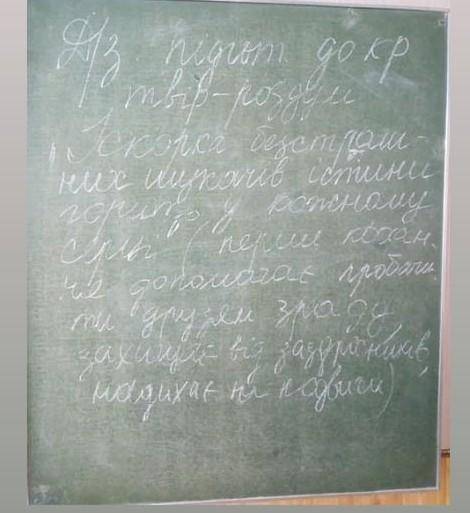 Д/з підгот до кр
твір-роздум
"Іскорка безстраш-
них шукачів істини
горить у кожному
серці (перше кохан-
ня допомагає пробачи-
ти друзям зраду,
захищає від заздрісників,
надихає на подвиги)